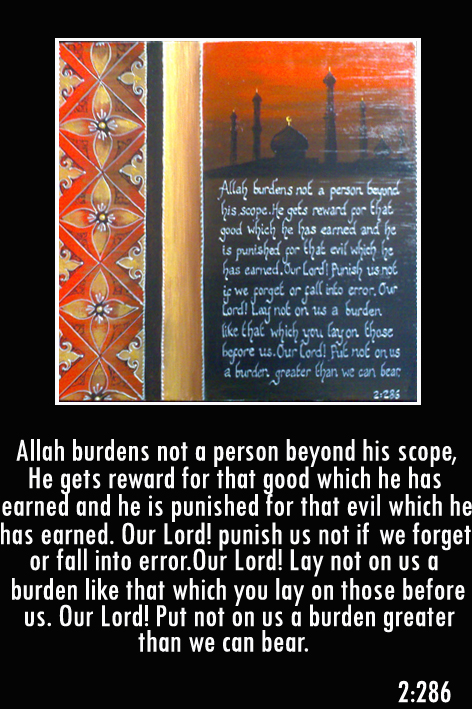 Allah burdens not a person beyond
his scope. He gets reward for that
good which he has earned and he
is punished for that evil which he
has earned. Our Lord! Punish us not
if we forget or fall into error. Our
Lord! Lay not on us a burden
like that which you lay on those
before us. Our Lord! Put not on us
a burden greater than we can bear.
2:286
Allah burdens not a person beyond his scope,
He gets reward for that good which he has
earned and he is punished for that evil which he
has earned. Our Lord! punish us not if we forget
or fall into error.Our Lord! Lay not on us a
burden like that which you lay on those before
us. Our Lord! Put not on us a burden greater
than we can bear.
2:286